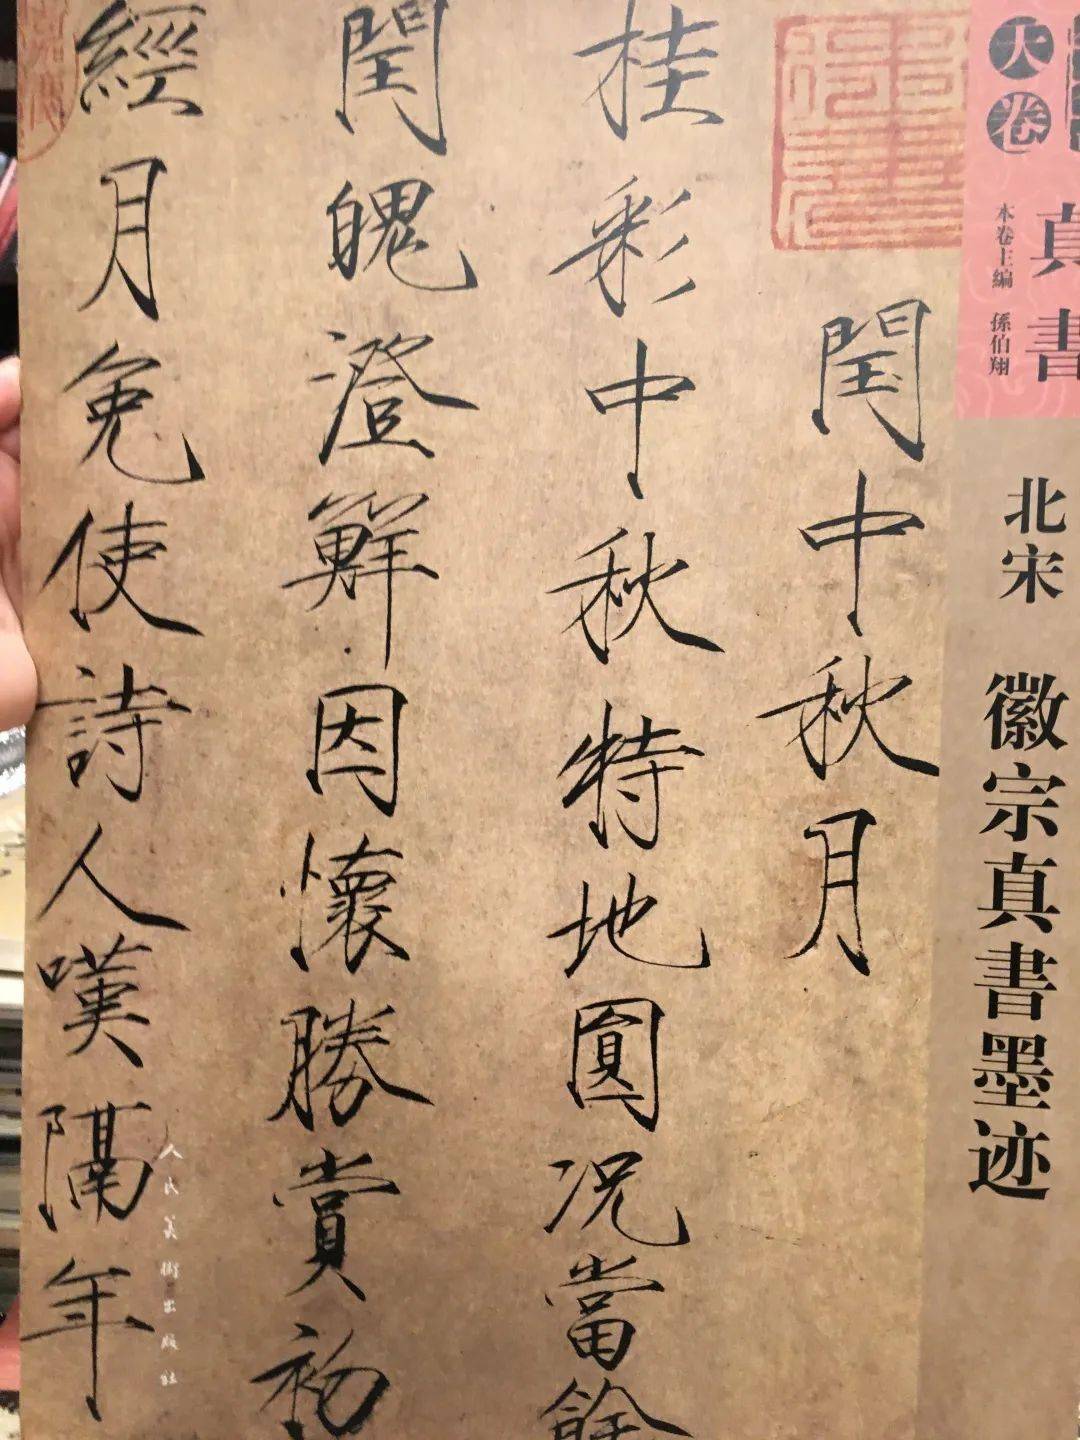 大卷
真書
本卷主編 孫伯翔
北宋 徽宗真書墨迹
閏中秋月
桂彩中秋特地圓况當餘
閏魄澄鮮因懷勝賞初
經月免使詩人嘆隔年
人民美術出版社